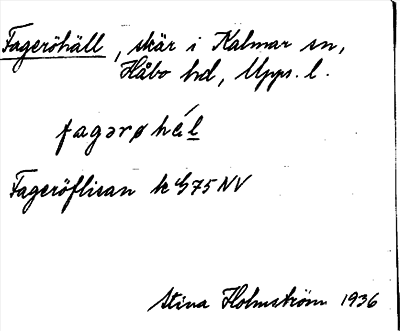 Fageröhäll, skär i Kalmar sn,
Håbo hd, Upps. l.
fagərø hɛ́l
Fageröflisan k G75 NV
Stina Holmström 1936